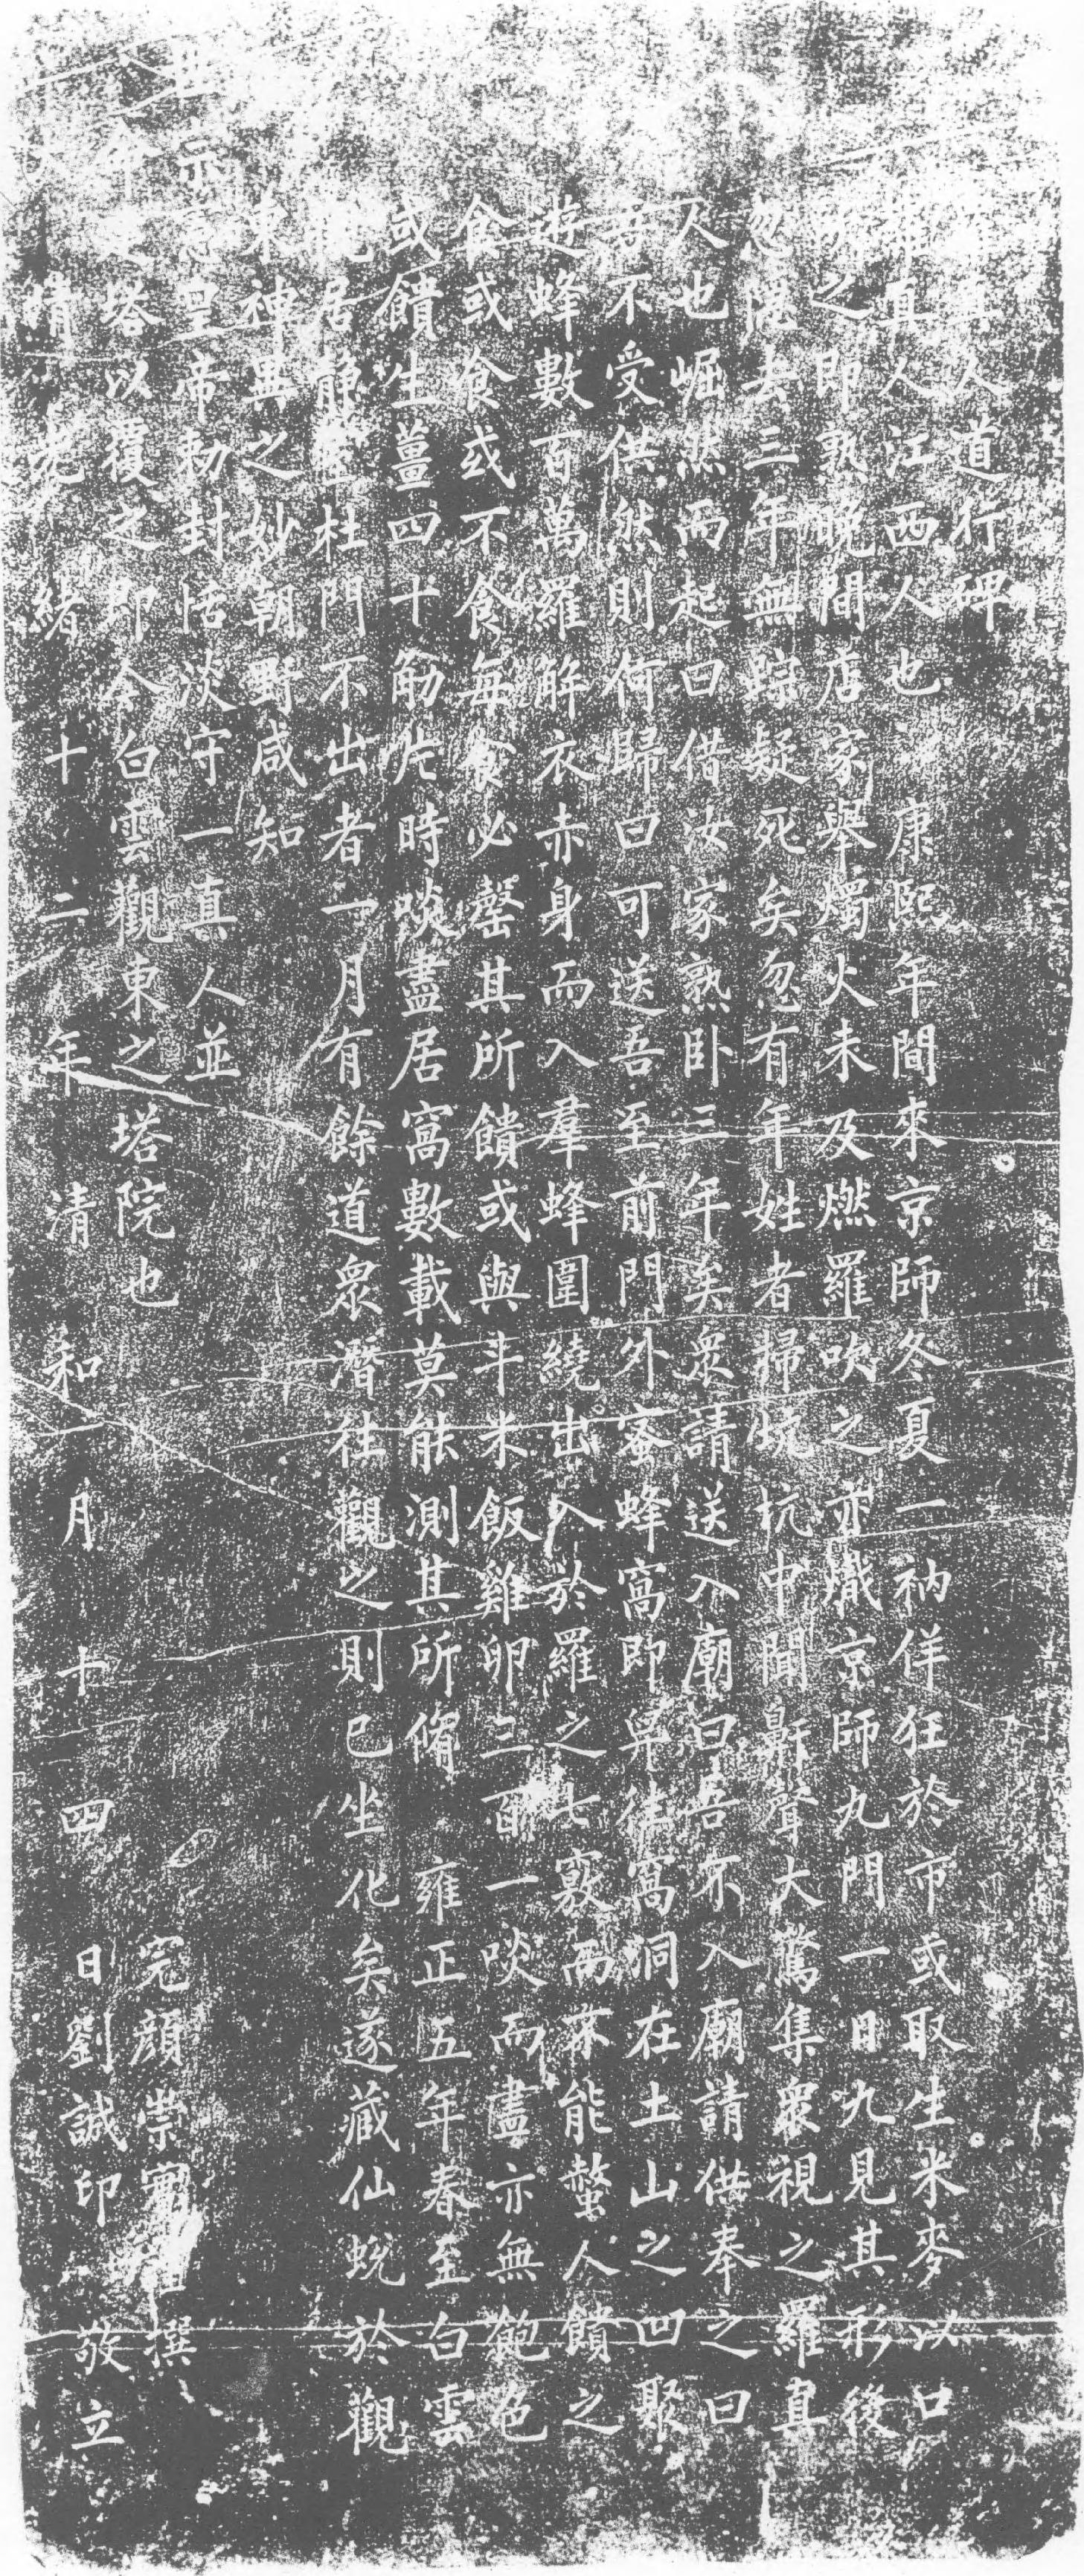 真人道行碑
真人江西人也康熙年間來京師冬夏一衲佯狂於市或取生米麥以口
吹之即熟晚間店家舉燭火未及燃羅吹之亦熾京師九門一日九見其形後
忽隱去三年無踪疑死矣忽有年姓者掃炕炕中聞鼾聲大驚集眾視之羅真
人也崛然而起曰借汝家熟卧三年矣眾請送入廟曰吾不入廟請供奉之曰
吾不受供然則何歸曰可送吾至前門外蜜蜂窩即舁往窩洞在土山之凹聚
遊蜂數百萬羅解衣赤身而入羣蜂圍繞出入於羅之七竅而弗能螫人饋之
食或食或不食每食必罄其所饋或與斗米飯雞卵三百一啖而盡亦無飽色
或饋生薑四十觔片時啖盡居窩數載莫能測其所脩雍正五年春至白雲
居靜杜門不出者一月有餘道眾潛往觀之則已坐化矣遂藏仙蛻於觀
東神異之妙朝野咸知
皇帝勅封恬淡守一真人並
塔以覆之即今白雲觀東之塔院也完顏崇實撰
時光緒十二年清和月十四日劉誠印敬立